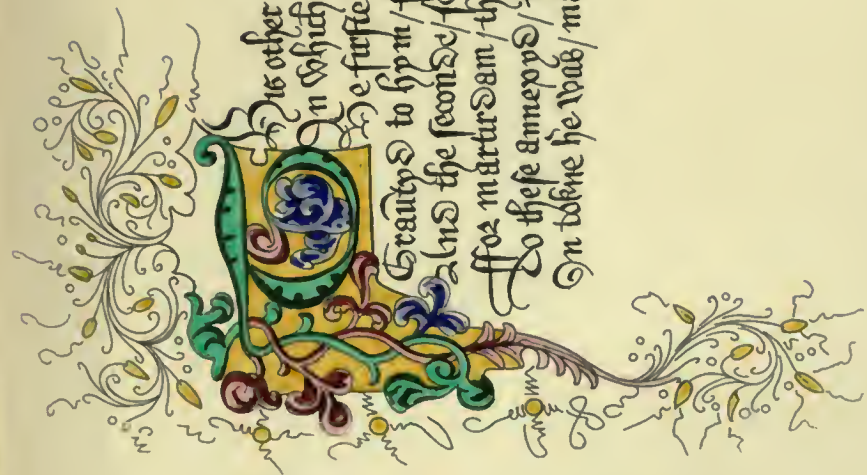 This other
In which
The firste
Grautyd to hym /
And the seconde fo
ffor martirdam / th
To these annexyd /
In tokne he was / ma